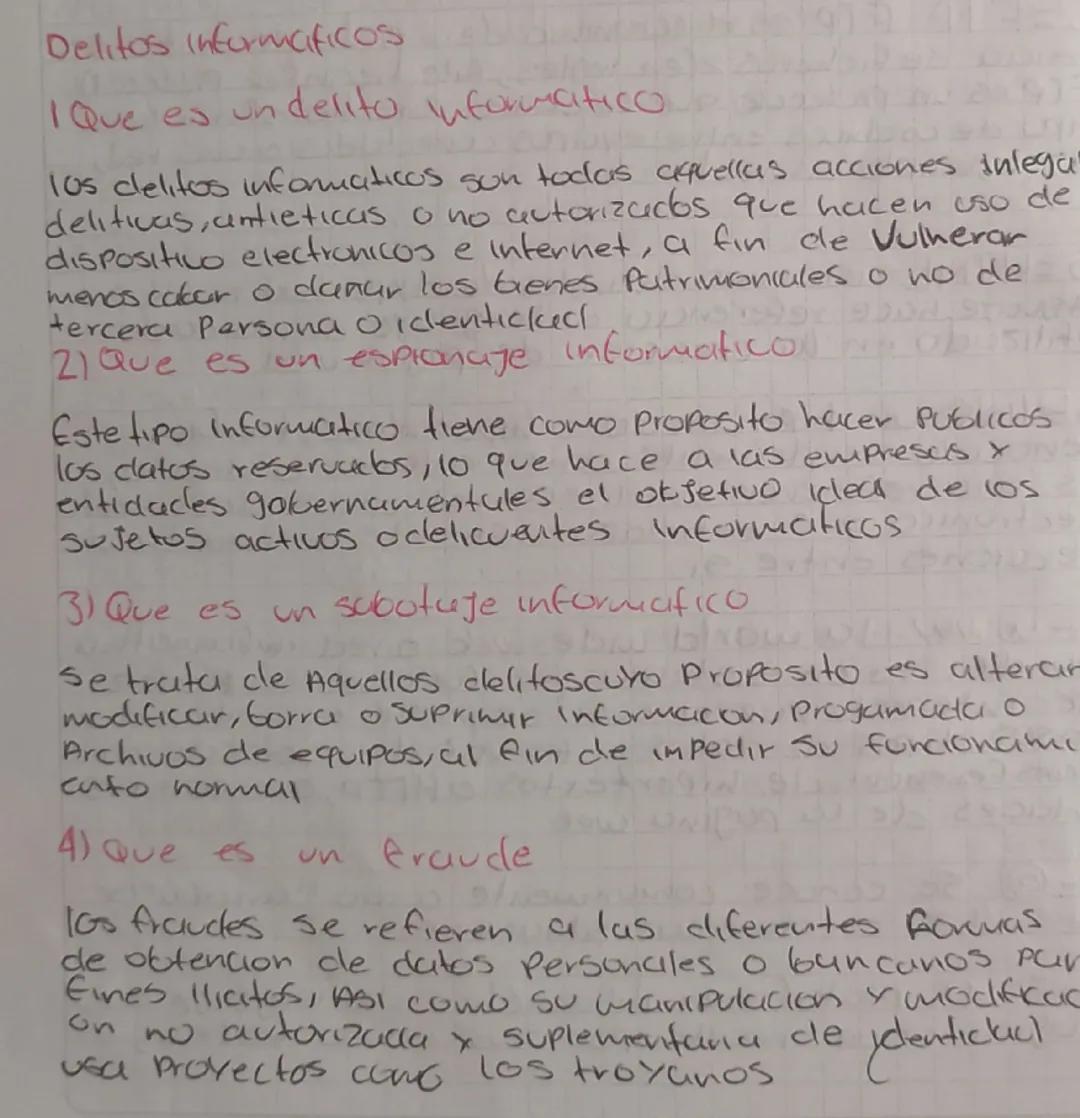 Delitos informaticos
1 Que es un delito informatico
los delitos informaticos son todas aquellas acciones inlega
delitivas, antieticas o no autorizados que hacen uso de
dispositivo electronicos e internet, a fin de Vulnerar
menos cabar o danar los bienes Patrimoniales o no de
tercera Persona o identidad
2) Que es un espionaje informatico
Este tipo informatico tiene como proposito hacer Publicos
los datos reservados, lo que hace a las empresas y
entidades gobernamentales el objetivo idea de los
sujetos activos o delicuentes informaticos
3) Que es un sabotaje informatico
Se trata de Aquellos delitos cuyo Proposito es alterar
modificar, borra o suprimir informacon, Progamada o
Archivos de equipos, al fin de impedir su funcionami
ento normal
4) Que es un fraude
los fraudes se refieren a las diferentes formas
de obtencion de datos Personales o bancarios par
fines ilicitos, Asi como su manipulacion y modificac
on no autorizada y suplementaria de identidad
usa Proyectos como los troyanos